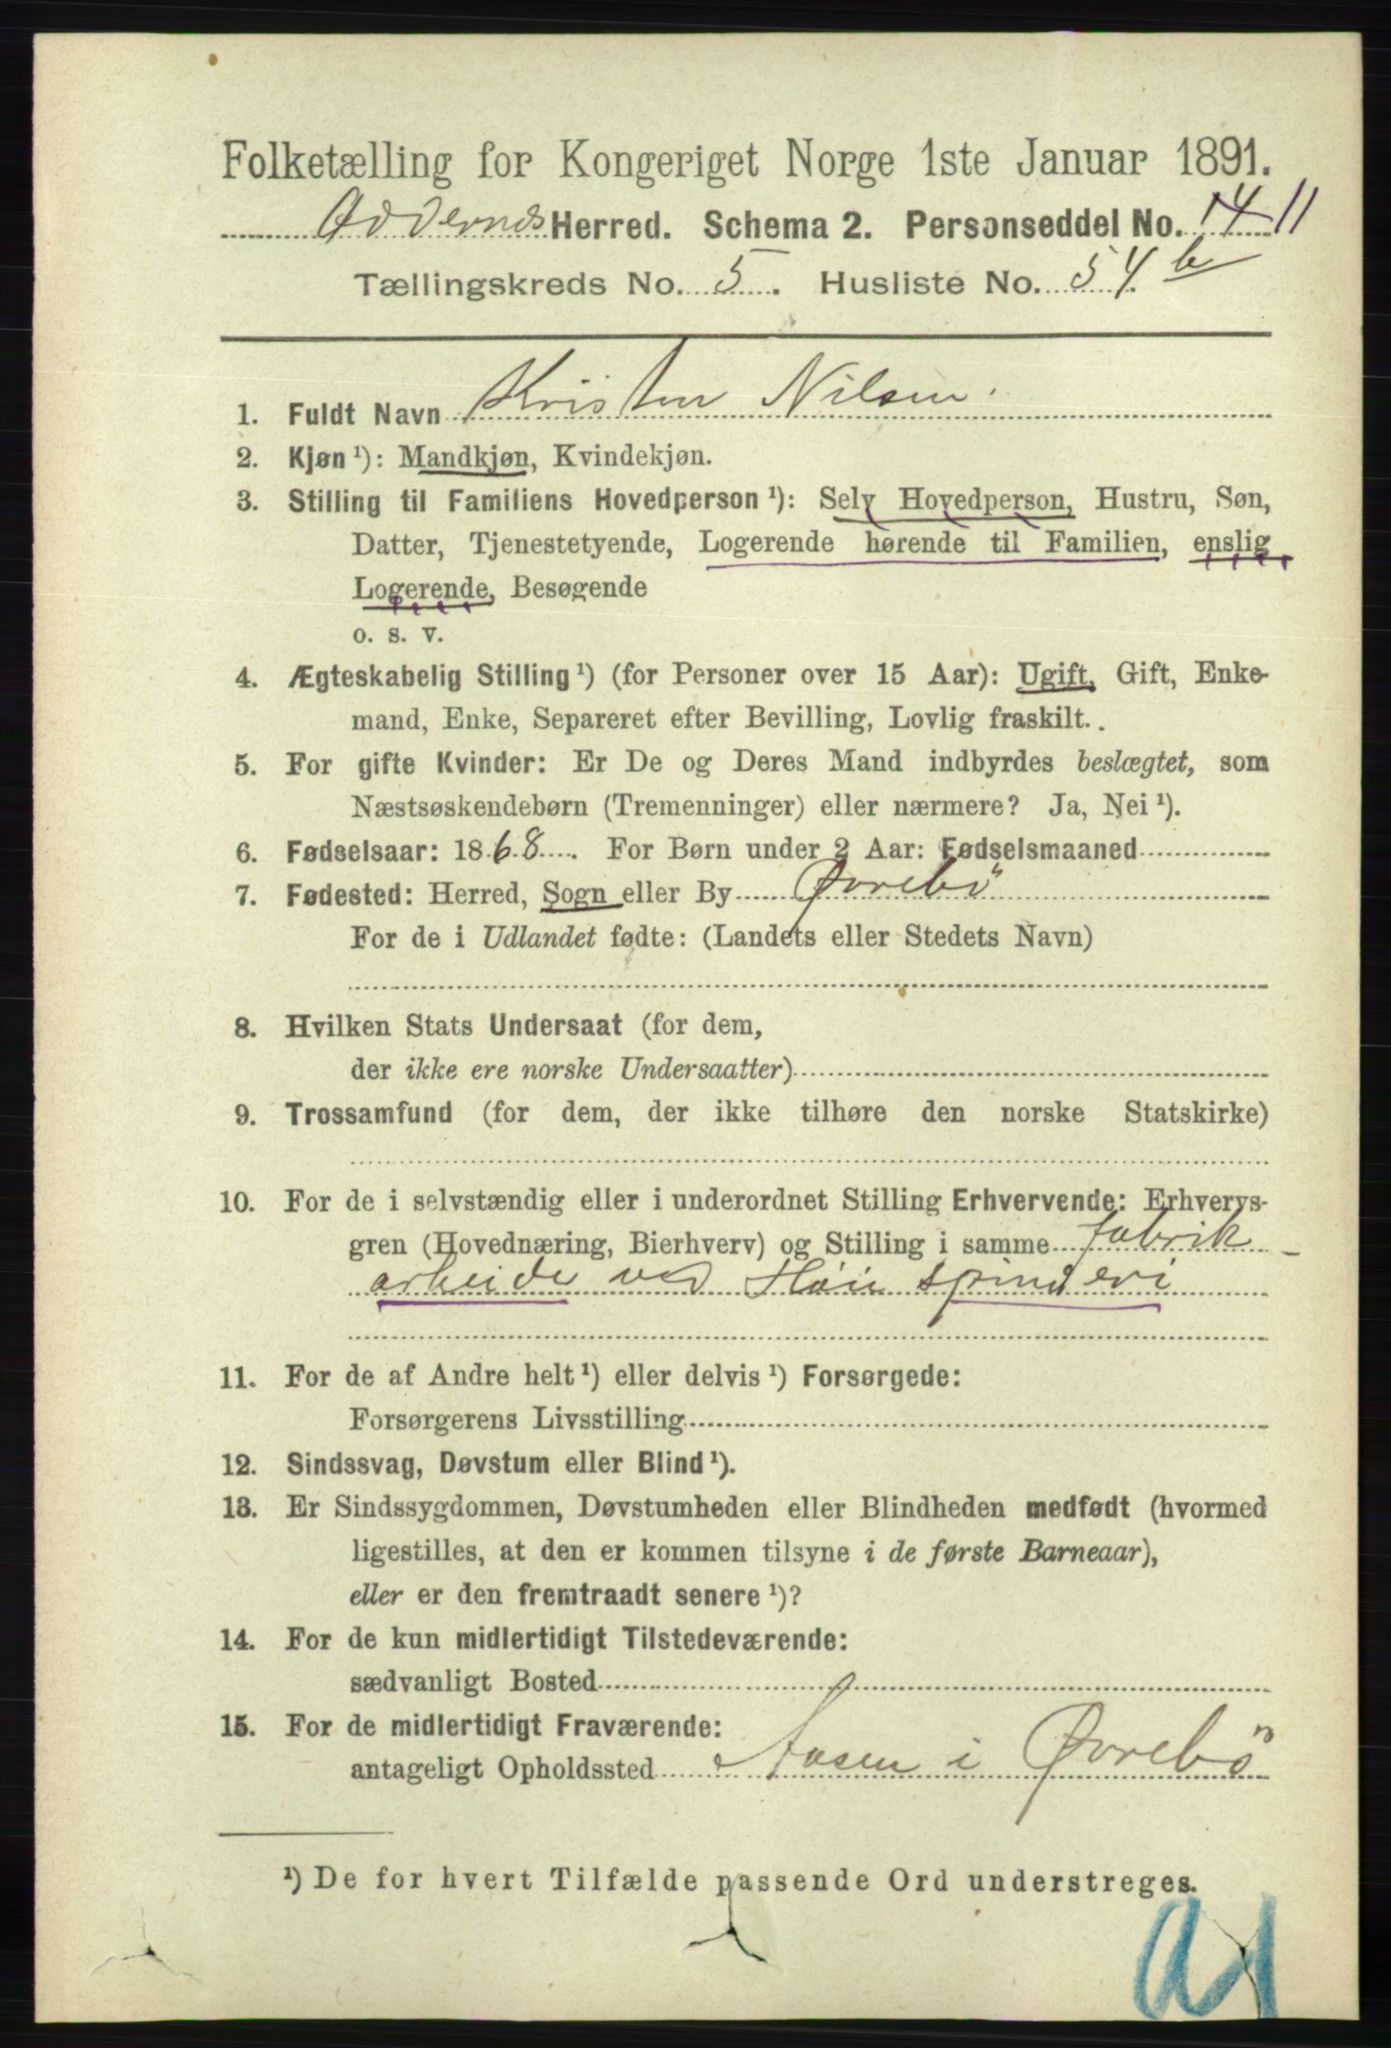 Folketælling for Kongeriget Norge 1ste Januar 1891.
Oddernes Herred. Schema 2. Personseddel No. 14 11
Tællingskreds No. 5. Husliste No. 54 b
1. Fuldt Navn Kristen Nilsen
2. Kjøn ¹): Mandkjøn, Kvindekjøn.
3. Stilling til Familiens Hovedperson ¹): Selv Hovedperson, Hustru, Søn,
Datter, Tjenestetyende, Logerende hørende til Familien, enslig
Logerende, Besøgende
o. s. v.
4. Ægteskabelig Stilling ¹) (for Personer over 15 Aar): Ugift, Gift, Enke-
mand, Enke, Separeret efter Bevilling, Lovlig fraskilt.
5. For gifte Kvinder: Er De og Deres Mand indbyrdes beslægtet, som
Næstsøskendebørn (Tremenninger) eller nærmere? Ja, Nei ¹).
6. Fødselsaar: 1868. For Børn under 2 Aar: Fødselsmaaned
7. Fødested: Herred, Sogn eller By Øvrebö
For de i Udlandet fødte: (Landets eller Stedets Navn)
8. Hvilken Stats Undersaat (for dem,
der ikke ere norske Undersaatter)
9. Trossamfund (for dem, der ikke tilhøre den norske Statskirke)
10. For de i selvstændig eller i underordnet Stilling Erhvervende: Erhvervs-
gren (Hovednæring, Bierhverv) og Stilling i samme fabrik-
arbeide ved Höie spinderi
11. For de af Andre helt ¹) eller delvis ¹) Forsørgede:
Forsørgerens Livsstilling
12. Sindssvag, Døvstum eller Blind ¹).
13. Er Sindssygdommen, Døvstumheden eller Blindheden medfødt (hvormed
ligestilles, at den er kommen tilsyne i de første Barneaar),
eller er den fremtraadt senere ¹)?
14. For de kun midlertidigt Tilstedeværende:
sædvanligt Bosted
15. For de midlertidigt Fraværende:
antageligt Opholdssted Aasen i Øvrebö
¹) De for hvert Tilfælde passende Ord understreges.